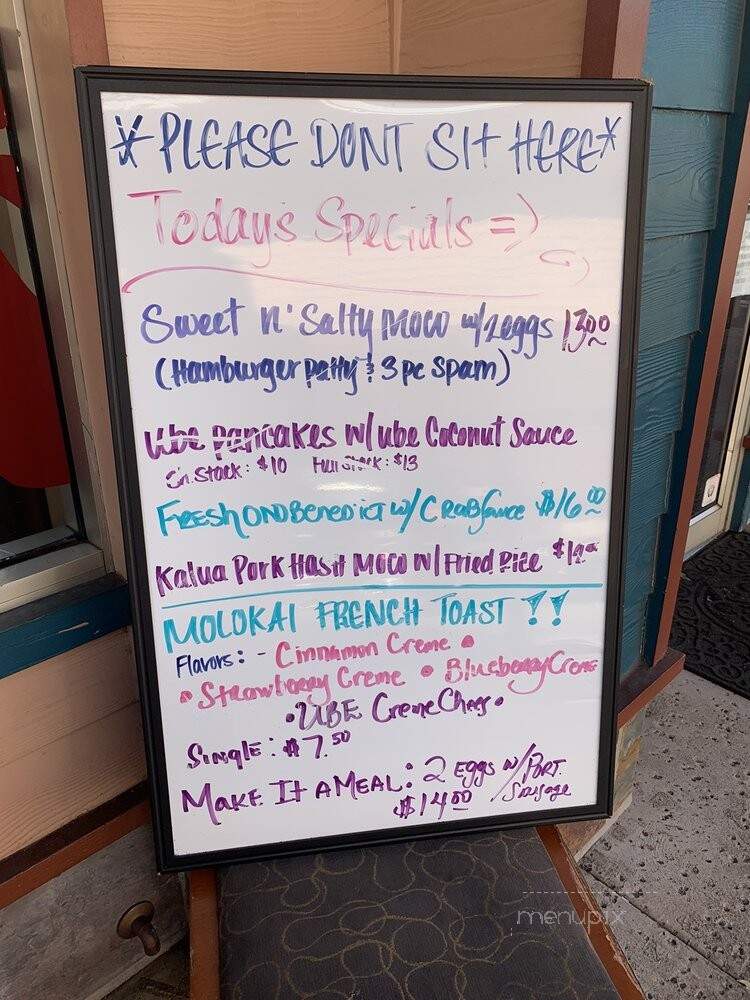 *PLEASE DONT SIt HERE*
Today's Specials =)
Sweet n' Salty MOCO w/2eggs 13.00
(Hamburger Patty & 3 pc Spam)
Ube Pancakes W/ ube Coconut Sauce
Sh. Stack: $10 Full Stack: $13
FRESH ONO BENEDICT W/ CRAB Sauce $16.00
Kalua Pork Hash Moco W/ Fried Rice
MOLOKAI FRENCH TOAST !!
Flavors: - Cinnamon Creme •
• Strawberry Creme • Blueberry Creme
• UBE Creme Chees •
SINGLE: $7.50
MAKE It A MEAL: 2 EGGS W/ PORT. Sausage
$14.00
menupix